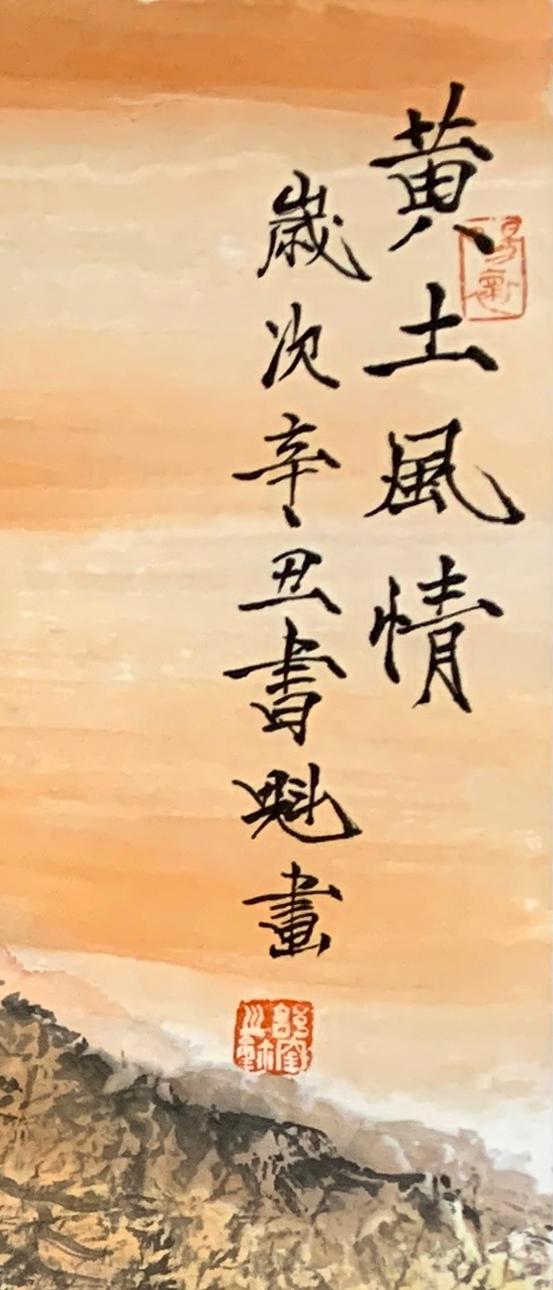 黄土風情
歳次辛丑書魁畫